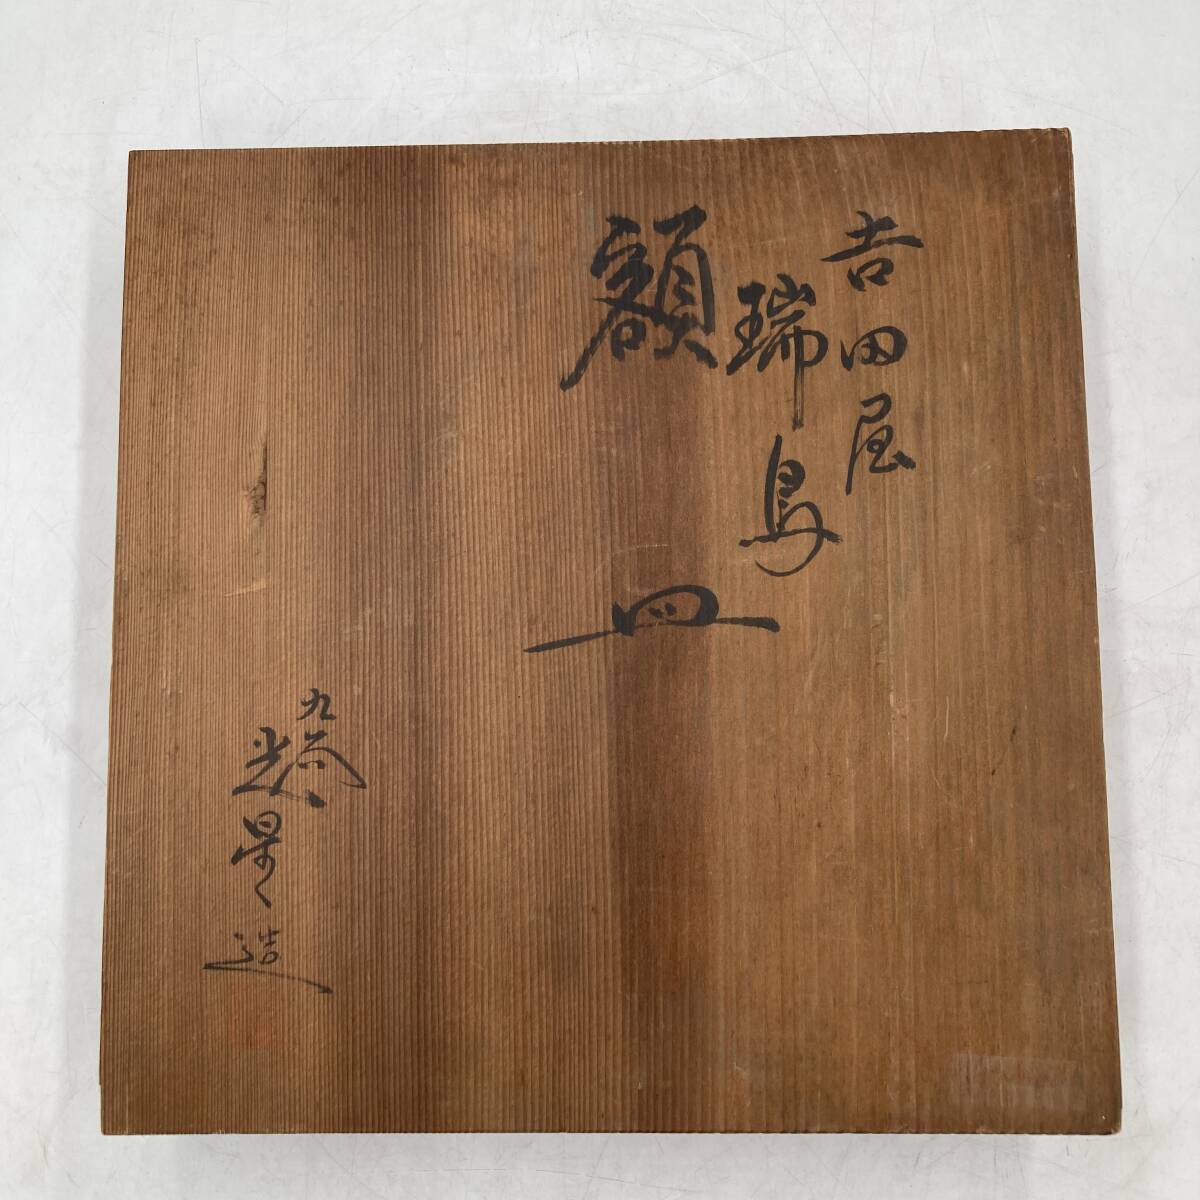 吉田屋
瑞鳥
額皿
九谷
光景造